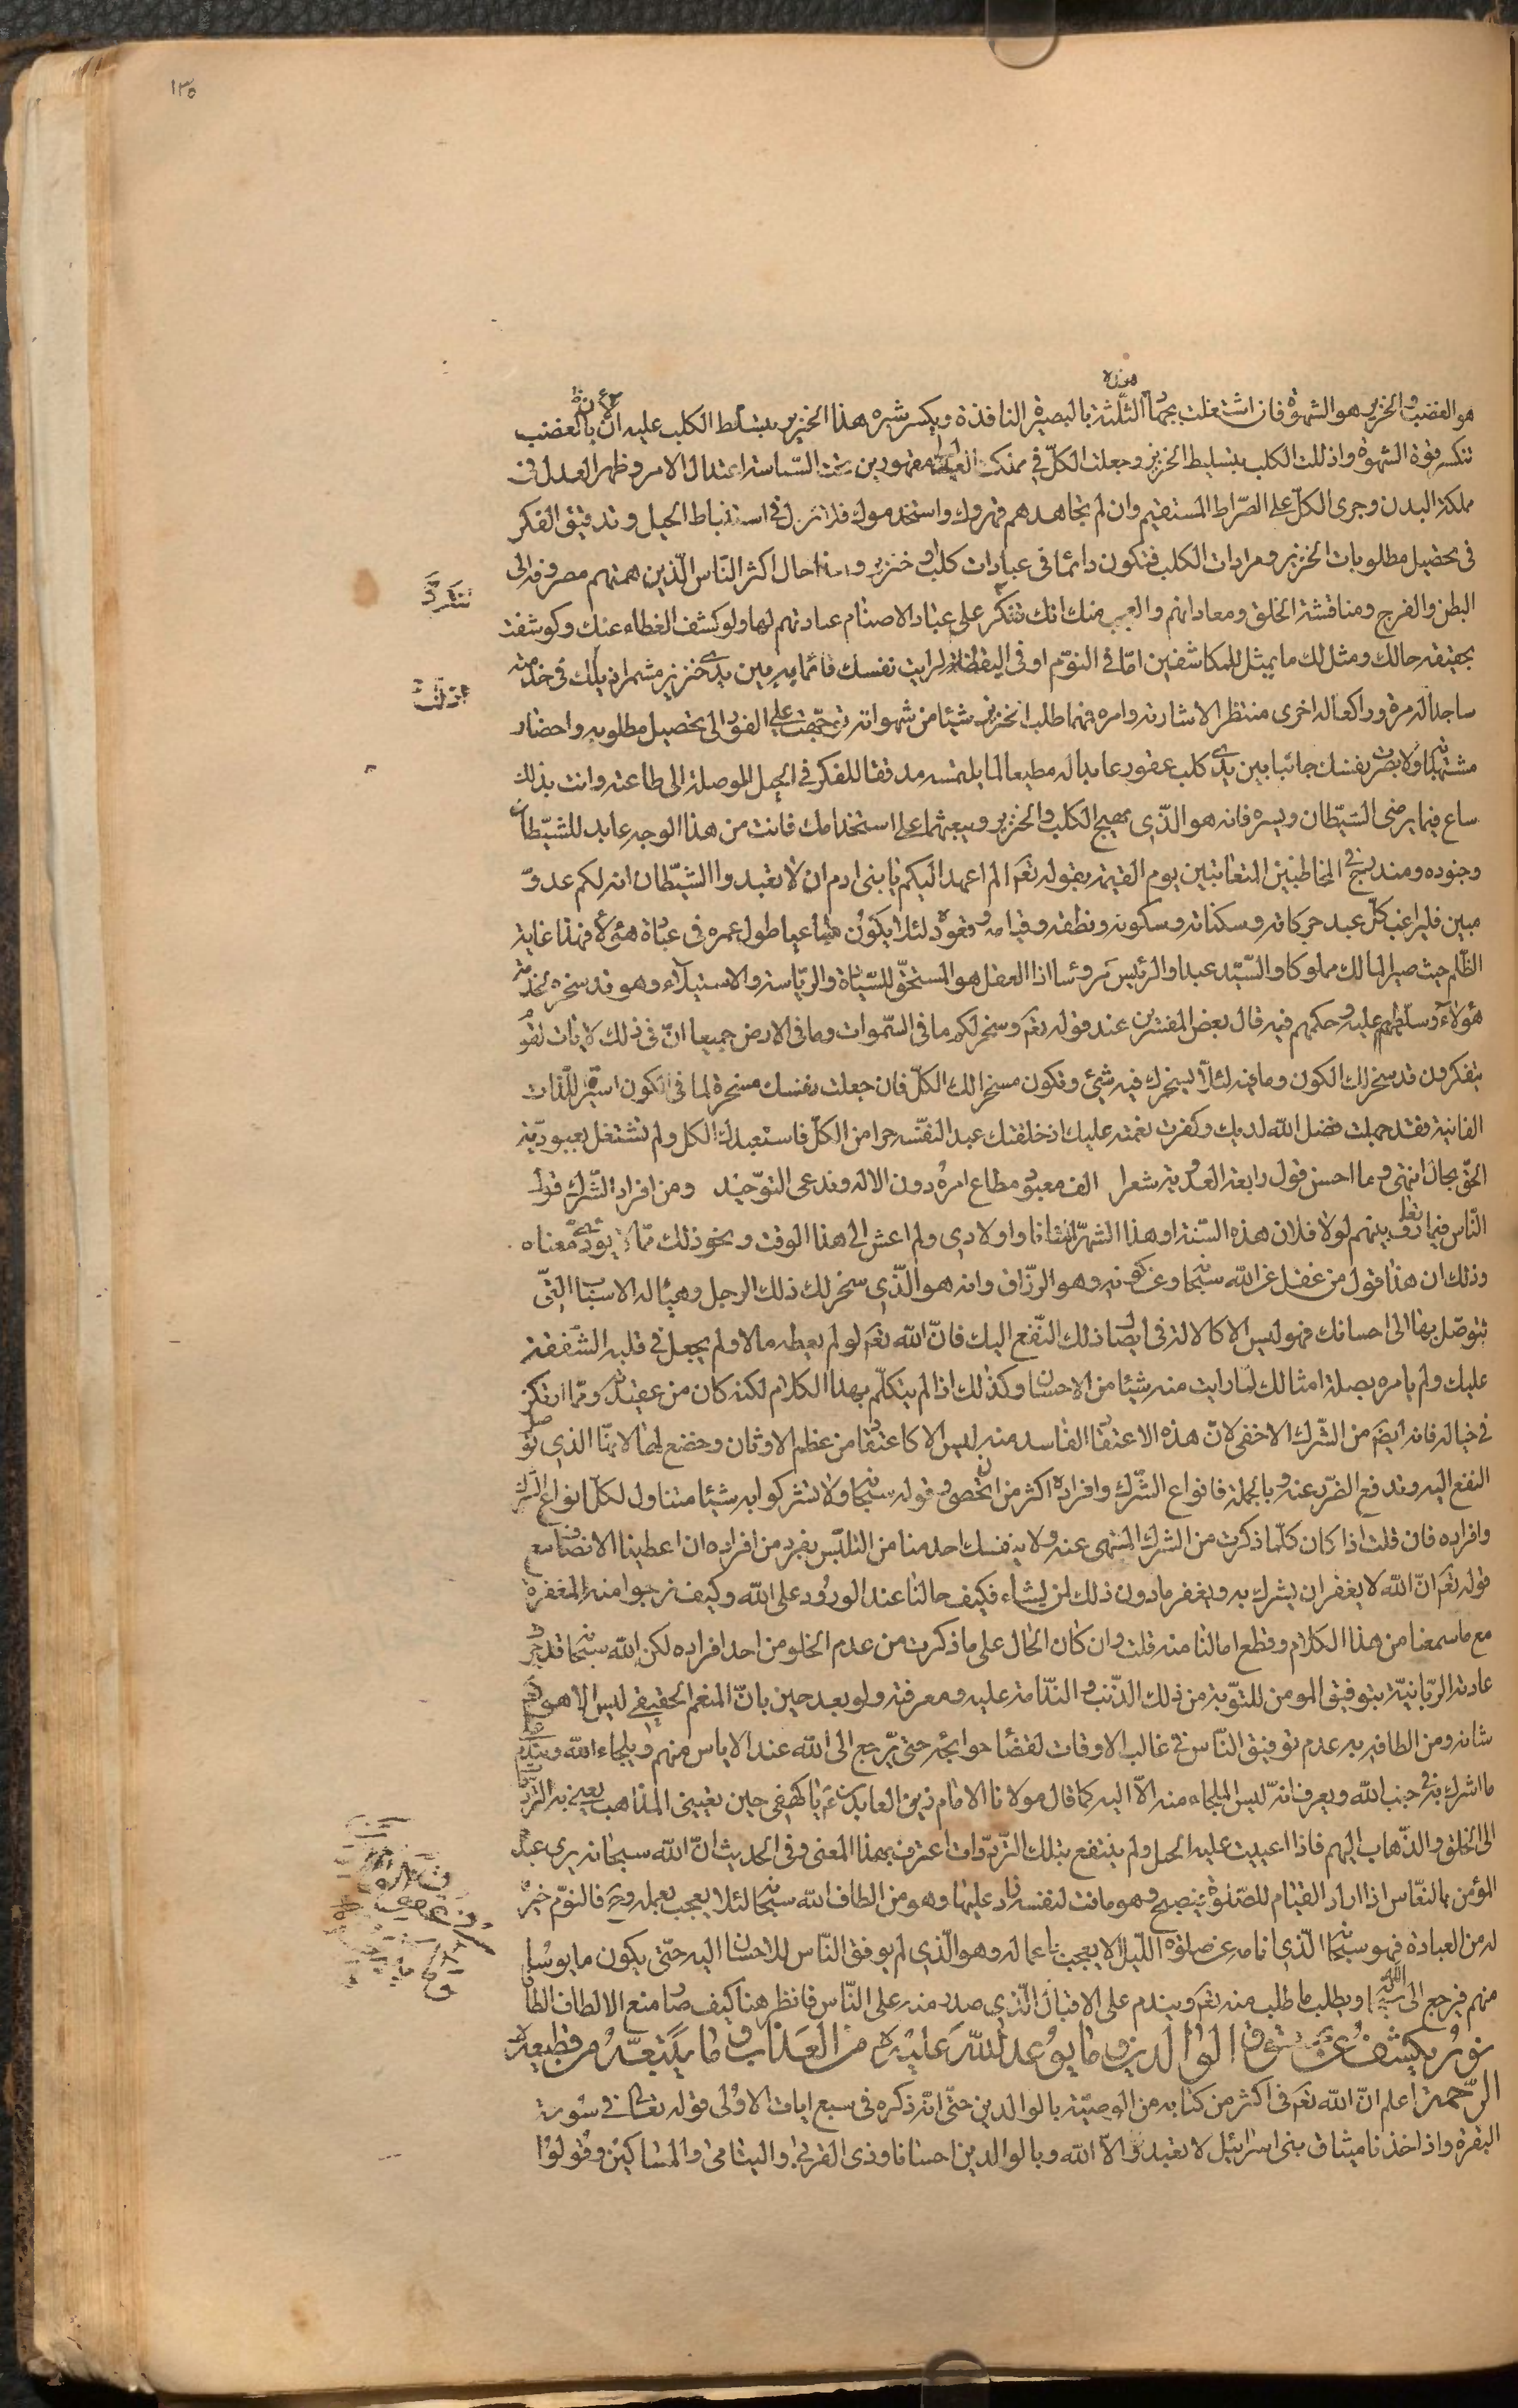 ١٣٥
هو الغضب والخنزير هو الشهوة فان اشتغلت بجهاد هذه الثلثة بالبصيرة النافذة وبكسر شره هذا الخنزير بتسليط الكلب عليه اذ بالغضب
تنكسر قوة الشهوة واذللت الكلب بتسليط الخنزير وجعلت الكلّ في مقهورين تحت السّياسة اعتدل الامر وظهر العدل في
مملكة البدن وجرى الكلّ على الصّراط المستقيم وان لم تجاهدهم قهروك واستخدموك فلا تزل في استنباط الحيل وتدقيق الفكر
في تحصيل مطلوبات الخنزير ومرادات الكلب فتكون دائما في عبادات كلب او خنزير وهذا حال اكثر النّاس الّذين همتهم مصروفة الى
البطن والفرج ومناقشة الخلق ومعاداتهم والعجب منك انك تنكر على عبّاد الاصنام عبادتهم لها ولو كشف الغطاء عنك وكوشفت
بحقيقة حالك ومثل لك ما يمثل للمكاشفين امّا في النوّم او في اليقظة لرايت نفسك قائما بين يدي خنزير مشمرا ذيلك في خدمته
ساجدا له مرة وراكعا له اخرى منتظر الاشارته وامره فمهما طلب الخنزير شيئا من شهواته توجّهت على الفور الى تحصيل مطلوبه واحضار
مشتهياته ولابصرت نفسك جاثيا بين يدي كلب عقور عابدا له مطيعا لما يلتمسه مدققا للفكر في الحيل الموصلة الى طاعته وانت بذلك
ساع فيما يرضى الشيّطان ويسره فانه هو الّذي يهيج الكلب والخنزير ويبعثهما على استخدامك فانت من هذا الوجه عابد للشيّطان
وجنوده ومندرج في المخاطبين المتعاتبين يوم القيمة بقوله تعم الم اعهد اليكم يا بنى ادم ان لا تعبدوا الشيّطان انه لكم عدوّ
مبين فليراغب كلّ عبد حركاته وسكناته وسكونه ونطقه وقيامه وقعوده لئلا يكون ساعيا طول عمره في عبادة هئولاء فهذا غاية
الظّلم حيث صير المالك مملوكا والسّيّد عبدا والرئيس مرؤسا اذ العقل هو المستحقّ للسّيادة والريّاسة والاستيلاء وهو قد سخره لخدمة
هؤلاء وسلّطهم عليه وحكمهم فيه قال بعض المفسّرين عند قوله تعم وسخر لكم ما في السّموات وما في الارض جميعا انّ في ذلك لايات لقوم
يتفكرون قد سخر لك الكون وما فيه لئلّا يسخرك فيه شيئ وتكون مسخر الك الكلّ فان جعلت نفسك مسخرة لما في الكون اسيرا للّذات
الفانية فقد جهلت فضل الله لديك وكفرت نعمته عليك اذ خلقك عبد النفسه حرا من الكلّ فاستعبدك الكل ولم تشتغل بعبوديّة
الحقّ بحال انتهى وما احسن قول رابعة العدوية شعرا الف معبود مطاع امره دون الاله وندعى التوّحيد ومن افراد الشّرك قول
النّاس فيما بينهم لولا فلان هذه السّنة او هذا الشهر لمتّ انا واولادي ولم اعش الى هذا الوقت ونحو ذلك ممّا يؤدي معناه
وذلك ان هذا قول من غفل عن الله سبحانه وعن كونه وهو الرزّاق وانه هو الّذي سخر لك ذلك الرجل وهيّا له الاسباب الّتي
تتوصّل بها الى احسانك فهو ليس الا كالالة في ايصال ذلك النّفع اليك فانّ الله تعم لو لم يعطه مالا ولم يجعل في قلبه الشّفقة
عليك ولم يامره بصلة امثالك لما رايت منه شيئا من الاحسان وكذلك اذا لم يتكلّم بهذا الكلام لكنه كان من عقيدته وممّا ارتكز
في خياله فانه ايضم من الشّرك الاخفى لانّ هذه الاعتقاد الفاسد منه ليس الا كاعتقاد من عظم الاوثان وخضع لها لانهّا الذي توصل
النفع اليه وتدفع الضّر عنه وبالجملة فانواع الشّرك وافراده اكثر من ان تحصى وقوله سبحانه ولا تشركوا به شيئا متناول لكلّ انواع الشرك
وافراده فان قلت اذا كان كلّما ذكرت من الشرك المنهى عنه ولا ينفسك احد منا من التلبّس بفرد من افراده ان اعطينا الانصاف مع
قوله تعم انّ الله لا يغفر ان يشرك به ويغفر ما دون ذلك لمن يشاء فكيف حالنا عند الورود على الله وكيف نرجوا منه المغفرة
مع ما سمعنا من هذا الكلام وقطع امالنا منه قلت وان كان الحال على ما ذكرت من عدم الخلو من احد افراده لكن الله سبحانه قد جرت
عادته الربّانيّة بتوفيق المومن للتوّبة من ذلك الذّنب والنّدامة عليه ومعرفة ولو بعد حين بانّ المنعم الحقيقي ليس الا هو
شانه ومن الطافه به عدم توفيق النّاس في غالب الاوقات لقضاء حوائجه حتى يرجع الى الله عند الاياس منهم ويلجاء الله ويندم على
ما اشرك به في جنب الله ويعرف انه ليس الملجاء منه الاّ اليه كما قال مولانا الامام زين العابدين عم يا كهفي حين تعييني المذاهب يعني به التردّد
الى الخلق والذّهاب اليهم فاذا اعييت عليه الحيل ولم ينتفع بتلك التّردّدات اعترف بهذا المعنى وفي الحديث انّ الله سبحانه يرى عبده
المؤمن بالنعّاس اذا اراد القيام للصّلوة فيصبح وهو ماقت لنفسه زاد عليها وهو من الطاف الله سبحانه لئلا يعجب بعمله وح فالنوّم خير
له من العبادة فهو سبحانه الّذي انامه عن صلوة اللّيل لئلا يعجب باعماله وهو الّذي لم يوفق النّاس للاحسان اليه حتّى يكون مايوسا
منهم فيرجع الى الله ويطلب ما طلب منه تعم ويندم على الاقبال الّذي صدر منه على النّاس فانظر هنا كيف صار منع الالطاف الطافا
نور يكشف عن عقوق الوالدين وما يوعد الله عليه من العذاب وما يتبعه من قطيعة
الرّحمة اعلم انّ الله تعم في اكثر من كتابه من الوصيّة بالوالدين حتّى انّه ذكره في سبع ايات الاولى قوله تعالى في سورة
البقرة واذ اخذنا ميثاق بنى اسرائيل لا تعبدوا الاّ الله وبالوالدين احسانا وذى القربى واليتامى والمساكين وقولوا